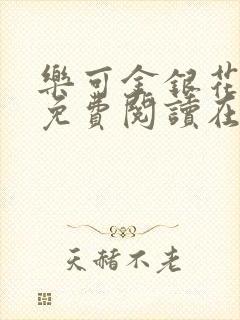 樂可金銀花
免費閱讀在
天赭不老